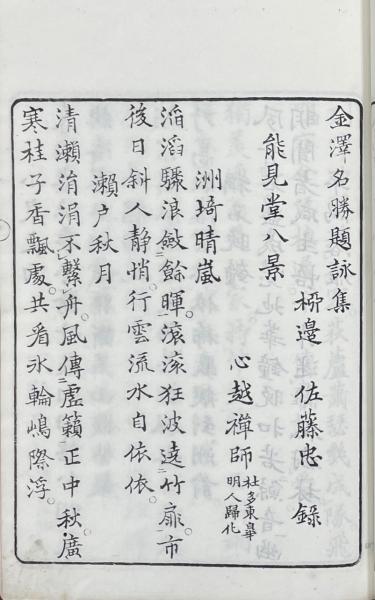 金澤名勝題詠集
栁邊佐藤忠錄
能見堂八景
心越禪師杜多東皐明人歸化
洲埼晴嵐
滔滔驟浪斂餘暉滚滚狂波遶竹扉市
後日斜人静悄行雲流水自依依
瀨戶秋月
清瀨涓涓不繫舟風傳虛籟正中秋廣
寒桂子香飄處共看氷輪嶋際浮